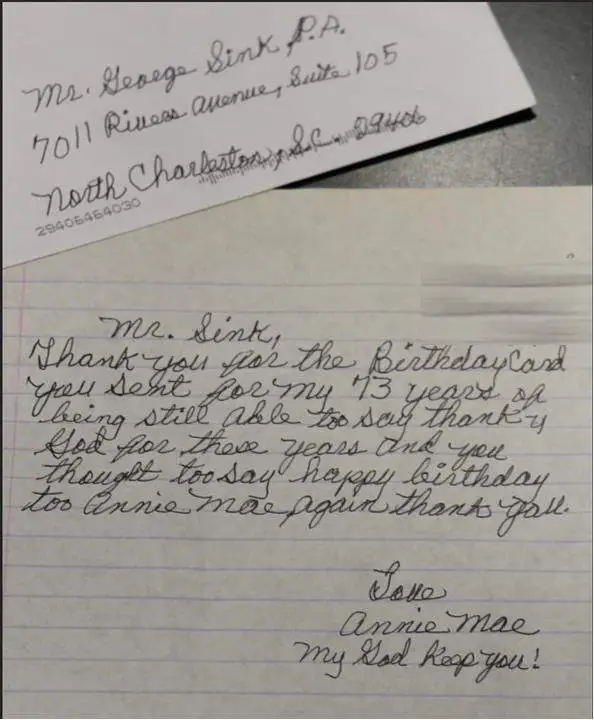 Mr. George Sink P.A.
7011 Rivers Avenue, Suite 105
North Charleston, S.C. 29406
29406464030
Mr. Sink,
Thank you for the Birthday Card
you sent for my 73 years of
being still able too say thank y
God for these years and you
thought too say happy birthday
too Annie Mae, again thank yall.
Love
Annie Mae
My God keep you!